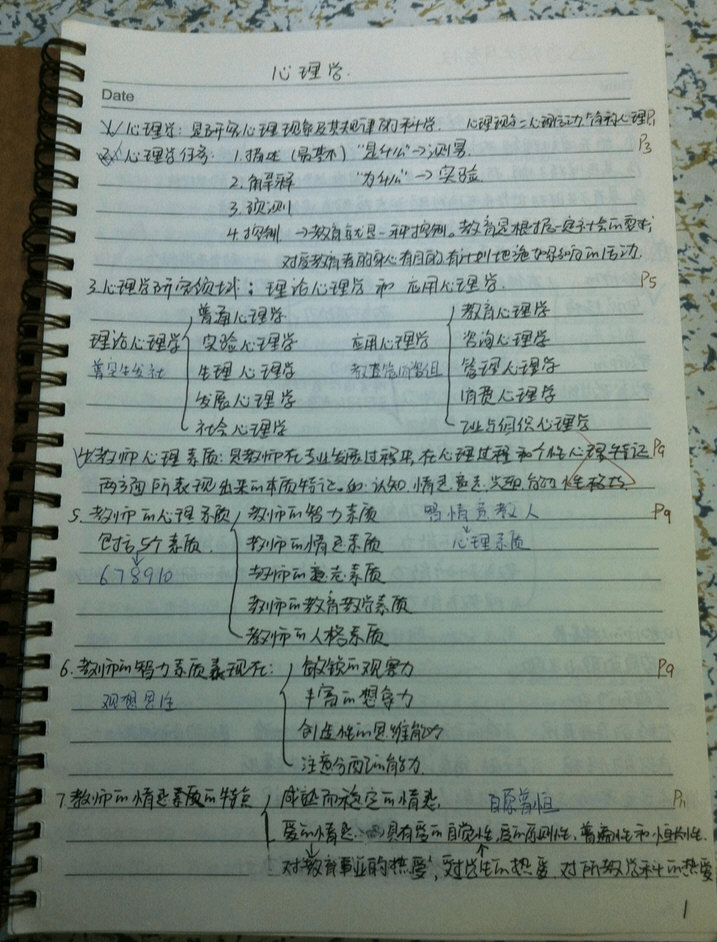 心理学.
Date
1. 心理学: 是研究心理现象及其规律的科学. 心理现象=心理活动
2. 心理学任务: 1. 描述 (最基本) "是什么"→测量. P3
2. 解释 "为什么"→实验
3. 预测
4. 控制 →教育就是一种控制。教育是根据一定社会的要求,
对受教育者的身心有目的有计划地施加影响的活动.
3. 心理学研究领域: 理论心理学 和 应用心理学. P5
普通心理学 教育心理学
理论心理学 实验心理学 应用心理学 咨询心理学
普实生发社 生理心理学 教咨管消智组 管理心理学
发展心理学 消费心理学
社会心理学 组织心理学
4. 教师心理素质: 是教师在专业发展过程中, 在心理过程和个性心理特征 P9
两方面所表现出来的本质特征。如: 认知 情感 意志 性格
5. 教师的心理素质 教师的智力素质 智情意教人 P9
包含5个素质. 教师的情感素质 心理素质
6 7 8 9 10 教师的意志素质
教师的教育教学素质
教师的人格素质
6. 教师的智力素质表现在: 敏锐的观察力 P9
观想思注 丰富的想象力
创造性的思维能力
注意分配的能力.
7 教师的情感素质的特点 成熟而稳定的情感. 自原普恒 P11
爱的情感. 具有爱的自觉性, 爱的原则性, 普遍性和恒长性.
对教育事业的热爱, 对学生的热爱 对所教学科的热爱
1